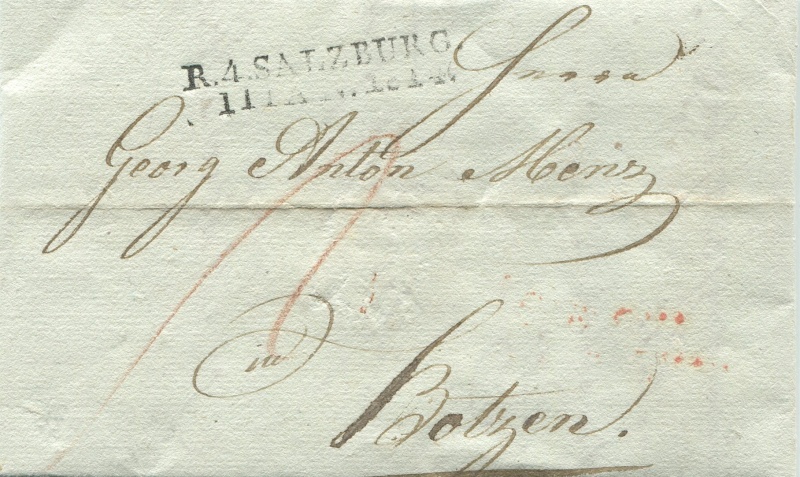 R.4.SALZBURG
Herrn
Georg Anton Menz
in
Botzen.